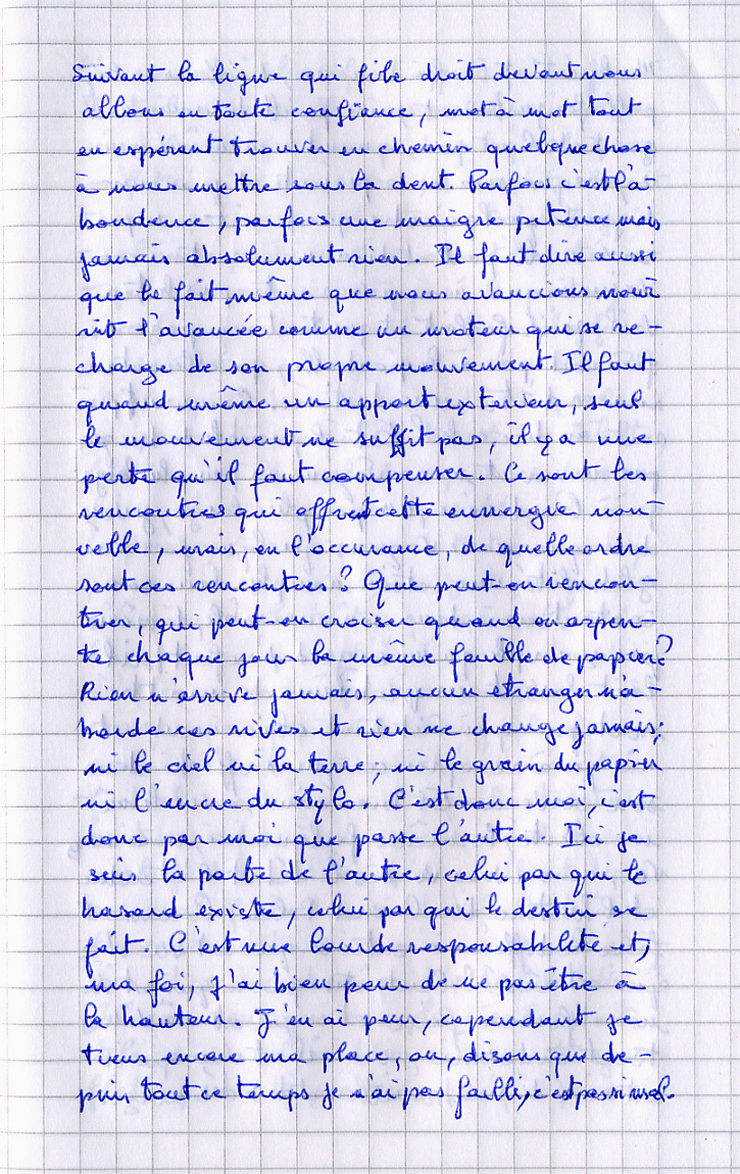 Suivant la ligne qui file droit devant nous
allons en toute confiance, mot à mot tout
en espérant trouver en chemin quelque chose
à nous mettre sous la dent. Parfois c'est l'a-
bondence, parfois une maigre pitence mais
jamais absolument rien. Il faut dire aussi
que le fait même que nous avancions nour-
rit l'avancée comme un moteur qui se re-
charge de son propre mouvement. Il faut
quand même un apport exterieur, seul
le mouvement ne suffit pas, il y a une
perte qu'il faut compenser. Ce sont les
rencontres qui offrent cette ennergie nou-
velle, mais, en l'occurance, de quelle ordre
sont ces rencontres ? Que peut-on rencon-
trer, qui peut-on croiser quand on arpen-
te chaque jour la même feuille de papier ?
Rien n'arrive jamais, aucun étranger n'a-
borde ces rives et rien ne change jamais ;
ni le ciel ni la terre ; ni le grain du papier
ni l'encre du stylo. C'est donc moi, c'est
donc par moi que passe l'autre. Ici je
suis la porte de l'autre, celui par qui le
hasard existe, celui par qui le destin se
fait. C'est une lourde responsabilité et,
ma foi, j'ai bien peur de ne pas être à
la hauteur. J'en ai peur, cependant je
tiens encore ma place, ou, disons que de-
puis tout ce temps je n'ai pas failli, c'est pas si mal.